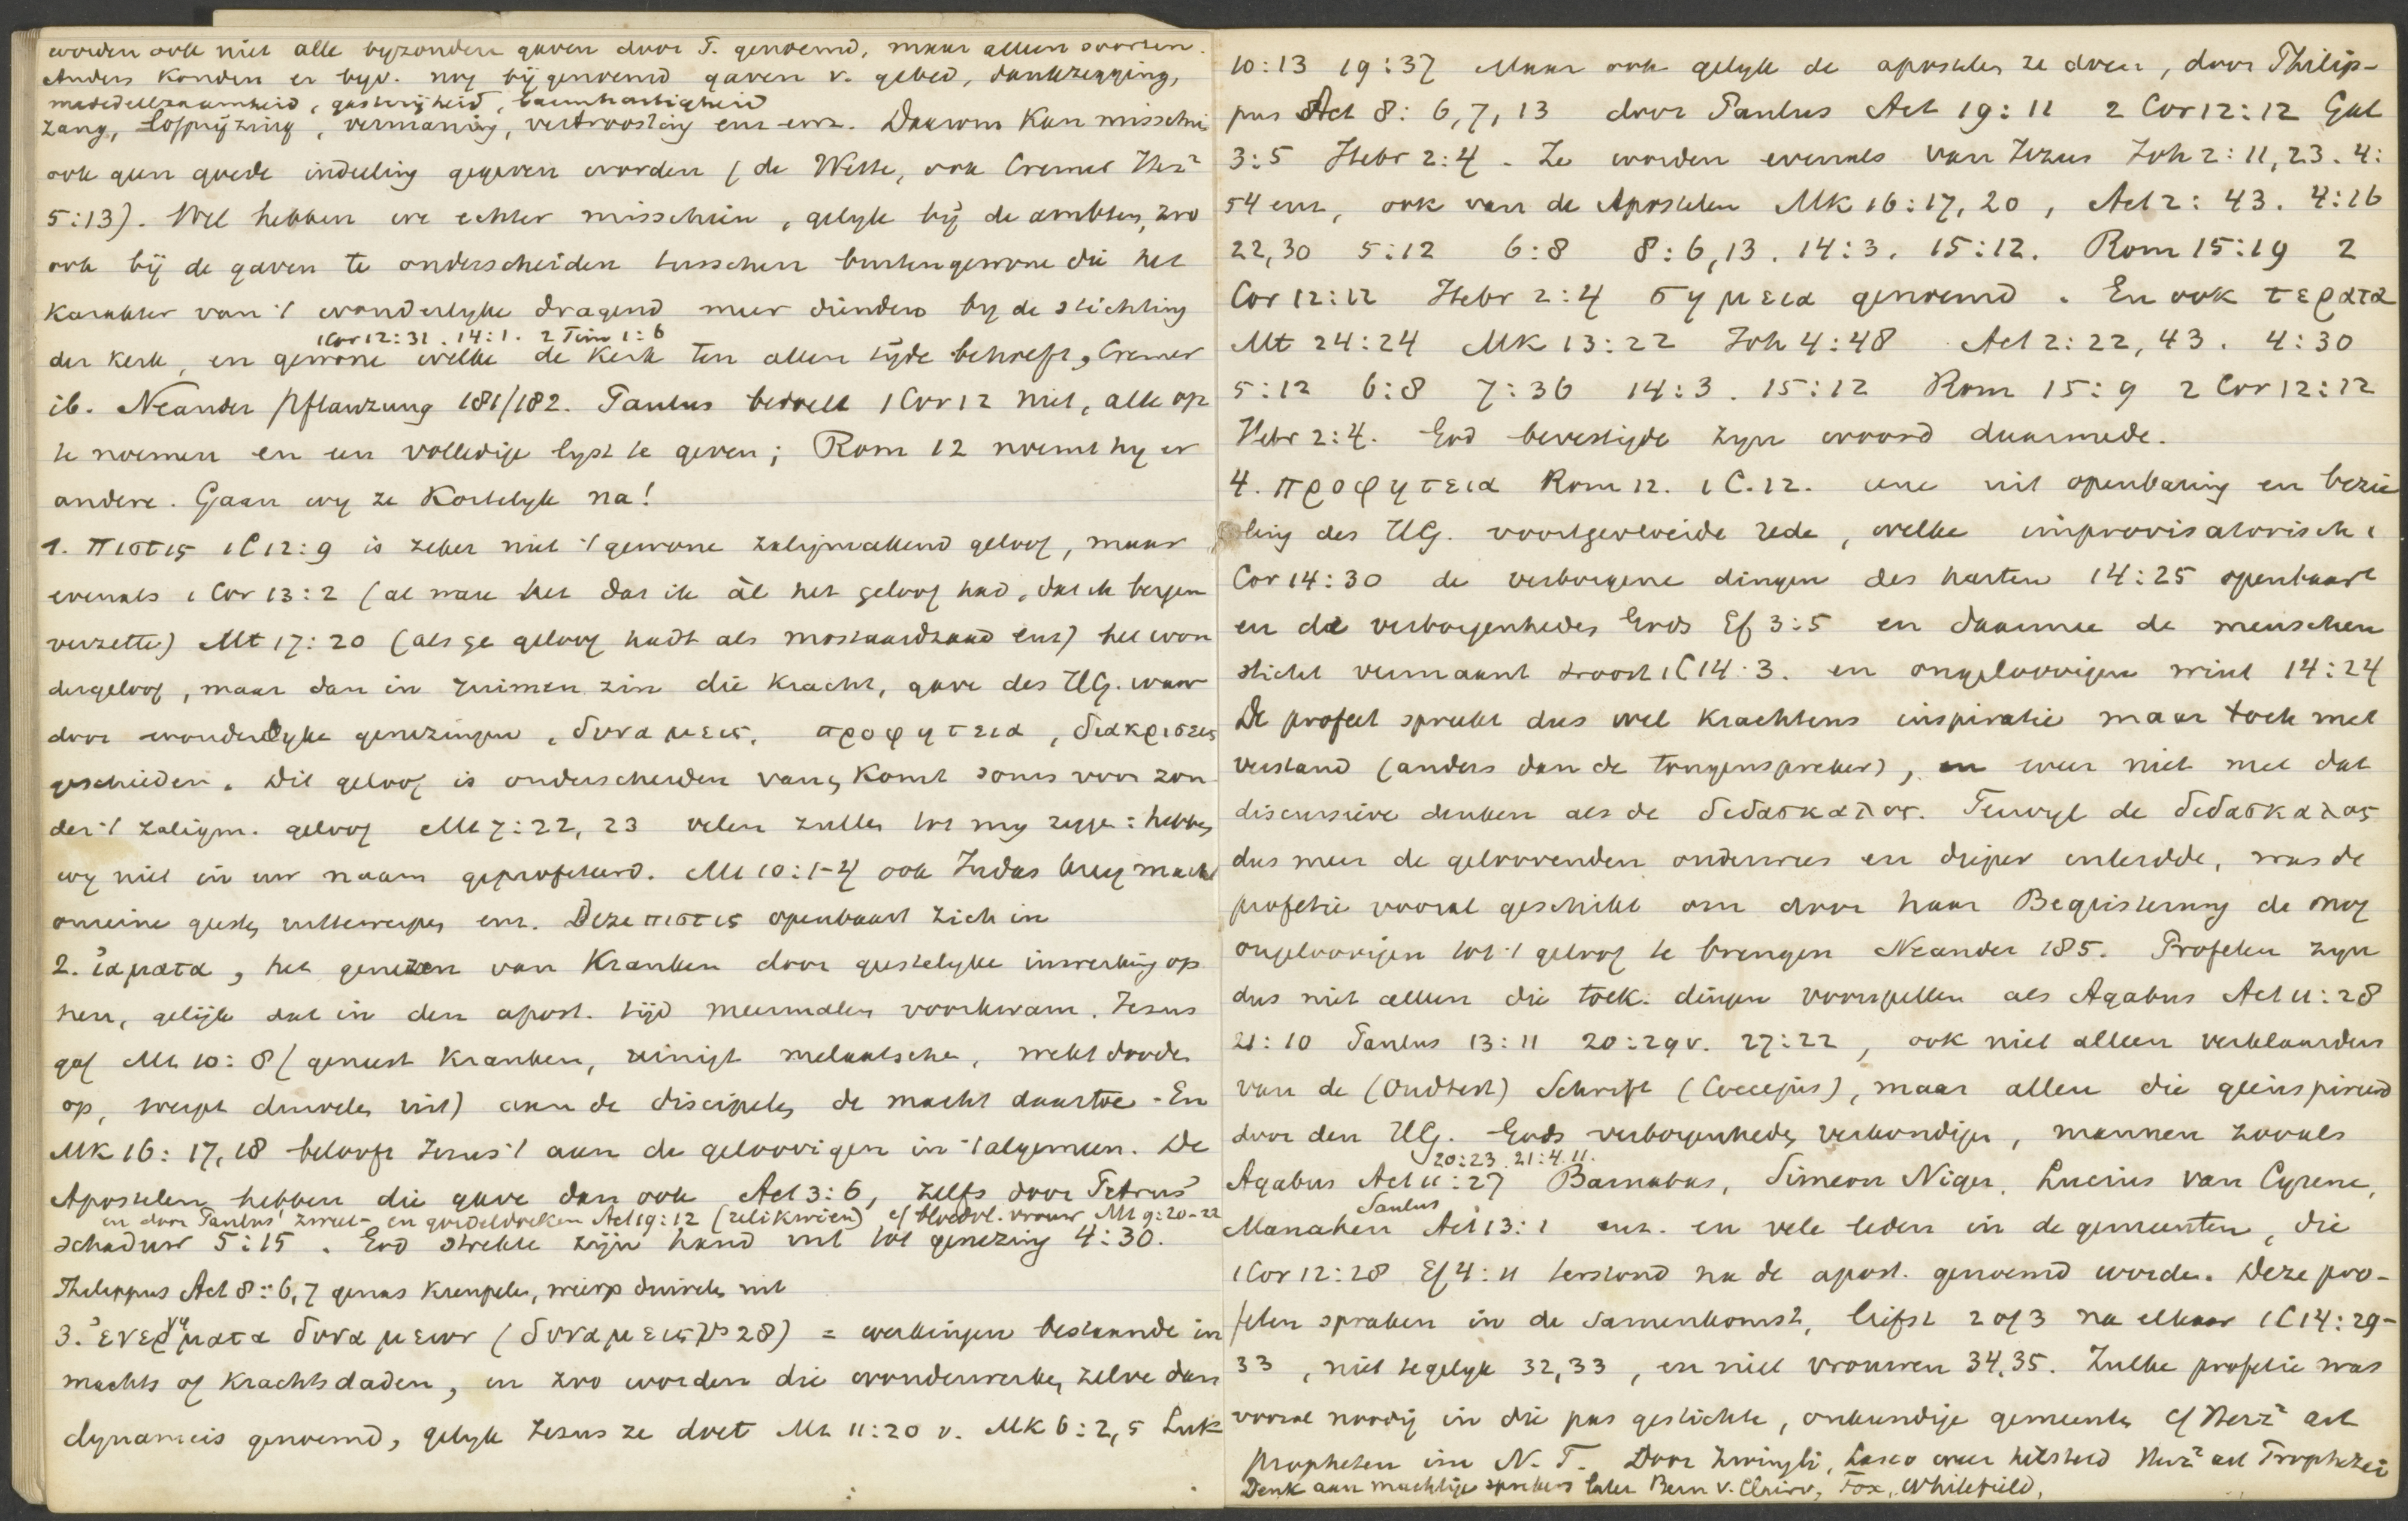 worden ook niet alle byzondere gaven door P. genoemd, maar alleen soorten.
Anders konden er bijv. nog bij genoemd gaven v. gebed, dankzegging,
mededeelzaamheid, gastvrijheid, barmhartigheid
zang, lofprijzing, vermaning, vertroosting enz enz. Daarom kan misschien
ook geen goede indeeling gegeven worden (de Wette, ook Cremer Herz²
5:13). Wel hebben we echter misschien, gelyk bij de ambten, zoo
ook bij de gaven te onderscheiden tusschen buitengewone die het
karakter van 't wonderlyke dragend meer dienden by de stichting
1Cor 12:31. 14:1. 2 Tim 1:6
der kerk, en gewone welke de kerk ten allen tyde behoeft, Cremer
ib. Neander Pflanzung 181/182. Paulus bedoelt 1 Cor 12 niet, alle op
te noemen en een volledige lyst te geven; Rom 12 noemt hy er
andere. Gaan wy ze kortelyk na!
1. πιστις 1C 12:9 is zeker niet 't gewone zaligmakend geloof, maar
evenals 1 Cor 13:2 (al ware het dat ik àl het geloof had, dat ik bergen
verzette) Mt 17:20 (als ge geloof hadt als mostaardzaad enz) het won
dergeloof, maar dan in ruimen zin die kracht, gave des H.G. waar
door wonderlyke genezingen, δυναμεις, προφητεια, διακρισεις
geschieden. Dit geloof is onderscheiden van, komt soms voor zon-
der 't zaligm. geloof Mt 7:22, 23 velen zullen tot my zeggen: hebben
wy niet in uw naam geprofeteerd. Mt 10:1-4 ook Judas kreeg macht
onreine geesten uittewerpen enz. Deze πιστις openbaart zich in
2. ἰαματα, het genezen van kranken door geestelyke inwerking op
hen, gelijk dat in den apost. tijd meermalen voorkwam. Jezus
gaf Mt 10:8 (geneest kranken, reinigt melaatschen, wekt dooden
op, werpt duivelen uit) aan de discipelen de macht daartoe. En
Mk 16:17,18 belooft Jezus 't aan de geloovigen in 't algemeen. De
Apostelen hebben die gave dan ook Act 3:6, zelfs door Petrus'
en door Paulus' zweet- en gordeldoeken Act 19:12 (relikwieën) cf bloedvl. vrouw Mt 9:20-22
schaduw 5:15. God strekte zijn hand uit tot genezing 4:30.
Philippus Act 8:6,7 genas kreupelen, wierp duivelen uit
3. ἐνεργηματα δυναμεων (δυναμεις vs 28) = werkingen bestaande in
machts of krachtsdaden, en zoo worden die wonderwerken zelve dan
dynameis genoemd, gelyk Jezus ze doet Mt 11:20 v. Mk 6:2,5 Luk
10:13 19:37 Maar ook gelyk de apostelen ze doen, door Philip-
pus Act 8:6,7,13 door Paulus Act 19:11 2 Cor 12:12 Gal
3:5 Hebr 2:4. Ze worden evenals van Jezus Joh 2:11,23. 4:
54 enz, ook van de Apostelen Mk 16:17,20, Act 2:43. 4:16
22,30 5:12 6:8 8:6,13. 14:3. 15:12. Rom 15:19 2
Cor 12:12 Hebr 2:4 σημεια genoemd. En ook τερατα
Mt 24:24 Mk 13:22 Joh 4:48 Act 2:22,43. 4:30
5:12 6:8 7:36 14:3. 15:12 Rom 15:9 2 Cor 12:12
Hebr 2:4. God bevestigde zyn woord daarmede.
4. προφητεια Rom 12. 1C.12. eene uit openbaring en bezie
ling des H.G. voortgevloeide rede, welke improvisatorisch 1
Cor 14:30 de verborgene dingen des harten 14:25 openbaart
en de verborgenheden Gods Ef 3:5 en daarmee de menschen
sticht vermaant troost 1C 14:3. en ongeloovigen wint 14:24
De profeet spreekt dus wel krachtens inspiratie maar toch met
verstand (anders dan de tongenspreker), en weer niet met dat
discursieve denken als de διδασκαλος. Terwyl de διδασκαλος
dus meer de geloovenden onderwees en dieper inleidde, was de
profetie vooral geschikt om door haar Begeistering de nog
ongeloovigen tot 't geloof te brengen Neander 185. Profeten zyn
dus niet alleen die toek. dingen voorspellen als Agabus Act 11:28
21:10 Paulus 13:11 20:29v. 27:22, ook niet alleen verklaarders
van de (Oudtest) Schrift (Coccejus), maar allen die geïnspireerd
door den H.G. Gods verborgenheden verkondigen, mannen zooals
20:23. 21:4. 11.
Agabus Act 11:27 Barnabas, Simeon Niger, Lucius van Cyrene,
Saulus
Manahen Act 13:1 enz. en vele leden in de gemeenten, die
1Cor 12:28 Ef 4:11 terstond na de apost. genoemd worden. Deze pro-
feten spraken in de samenkomst, liefst 2 of 3 na elkaar 1C 14:29-
33, niet tegelyk 32,33, en niet vrouwen 34,35. Zulke profetie was
vooral noodig in die pas gestichte, onkundige gemeenten cf Herz² art
Propheten im N.T. Door Zwingli, Lasco weer hersteld Herz² art Prophezei
Denk aan machtige sprekers later Bern v. Clairv, Fox, Whitefield,